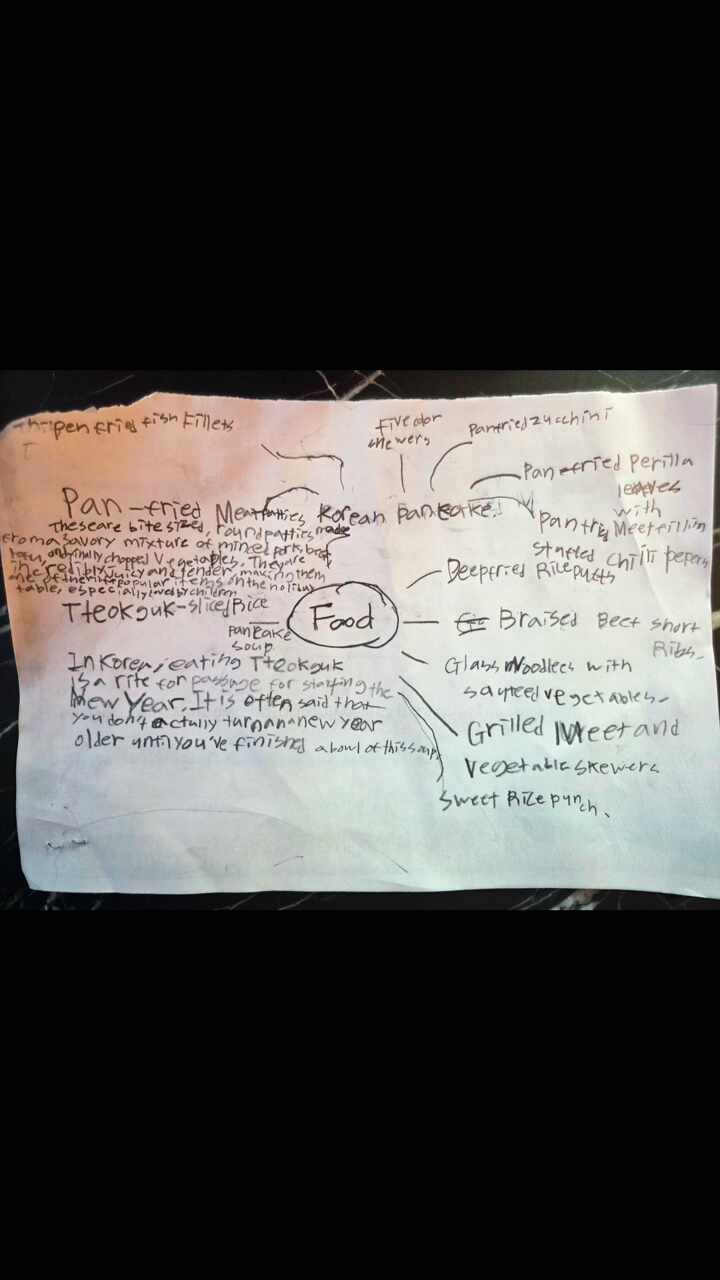 pen fried fish Fillets
Five color
skewers
Panfried zucchini
Pan-fried Perilla
leaves
with
Pan-fried Meat patties Korean Pancake
These are bite sized, round patties made
from a savory mixture of minced pork, beef
tofu, and finally chopped Vegetables. They are
incredibly juicy and tender, making them
one of the most popular items on the holiday
table, especially loved by children
Pan fried Meet fillin
stuffed chilli pepers
Deepfried Rice puffs
Tteokguk-sliced Rice
pancake
soup
Food
Braised Beef short
Ribs.
In Korea, eating Tteokguk
is a rite for passage for starting the
New Year. It is often said that
you don't actully turn a new year
older until you've finished a bowl of this soup.
Glass Noodlees with
sauteed vegetables.
Grilled Meet and
vegetable skewers
Sweet Rice punch.